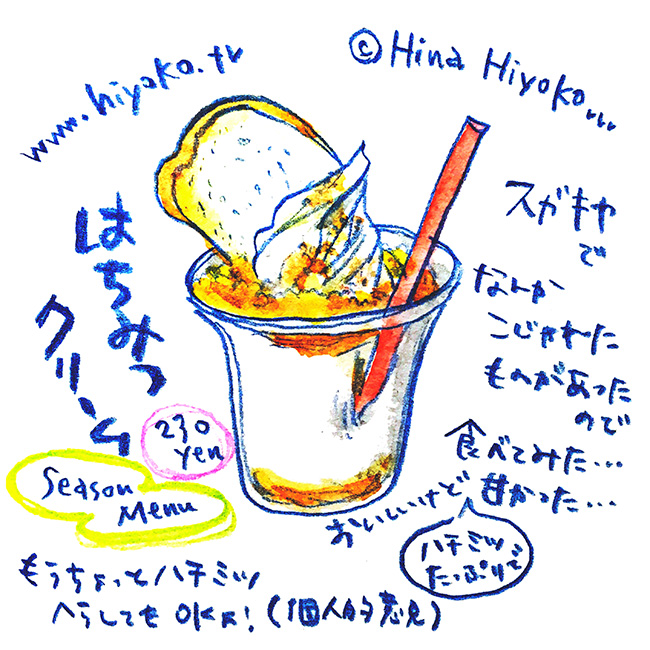 www.hiyoko.tv
© Hina Hiyoko...
はちみつ
クリーム
230
yen
Season
Menu
スガキヤ
で
なんか
こじゃれた
ものがあった
ので
食べてみた...
甘かった...
おいしいけど
ハチミツ
たっぷりで
もうちょっとハチミツ
へらしてもOKよ!(個人的意見)